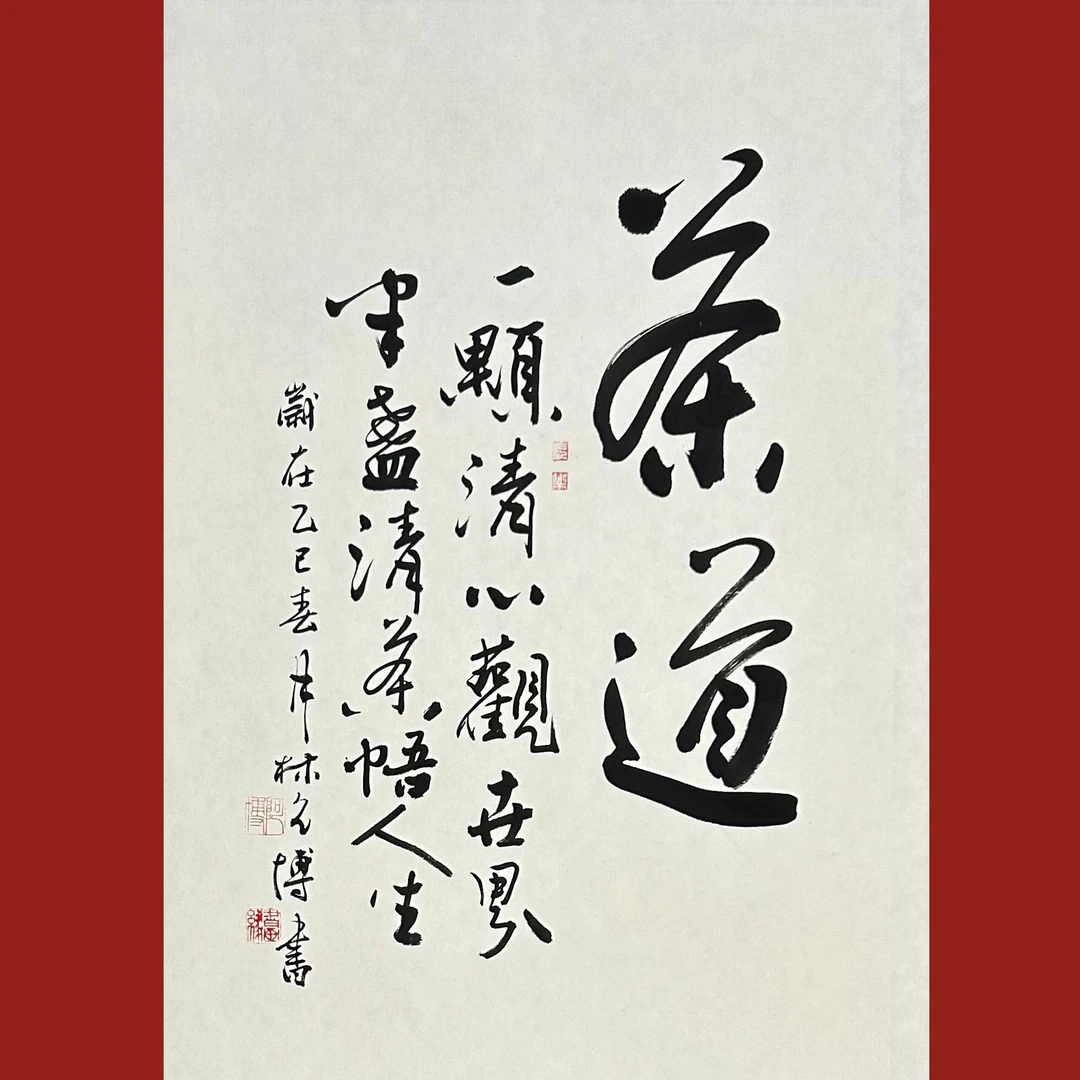 茶道
一顆清心觀世界
半盞清茶悟人生
歲在乙巳春月林允博書
阿博